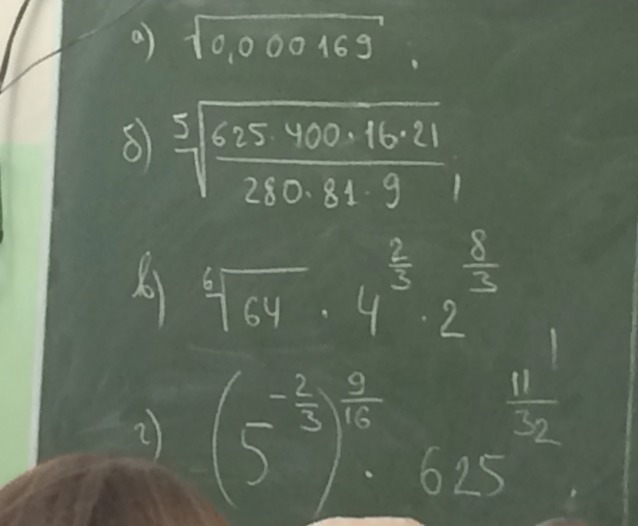 а) √0,000169,
б) ⁵√(625·400·16·21 / 280·81·9),
в) ⁶√64 · 4^(2/3) · 2^(8/3),
г) (5^(-2/3))^(9/16) · 625^(11/32).